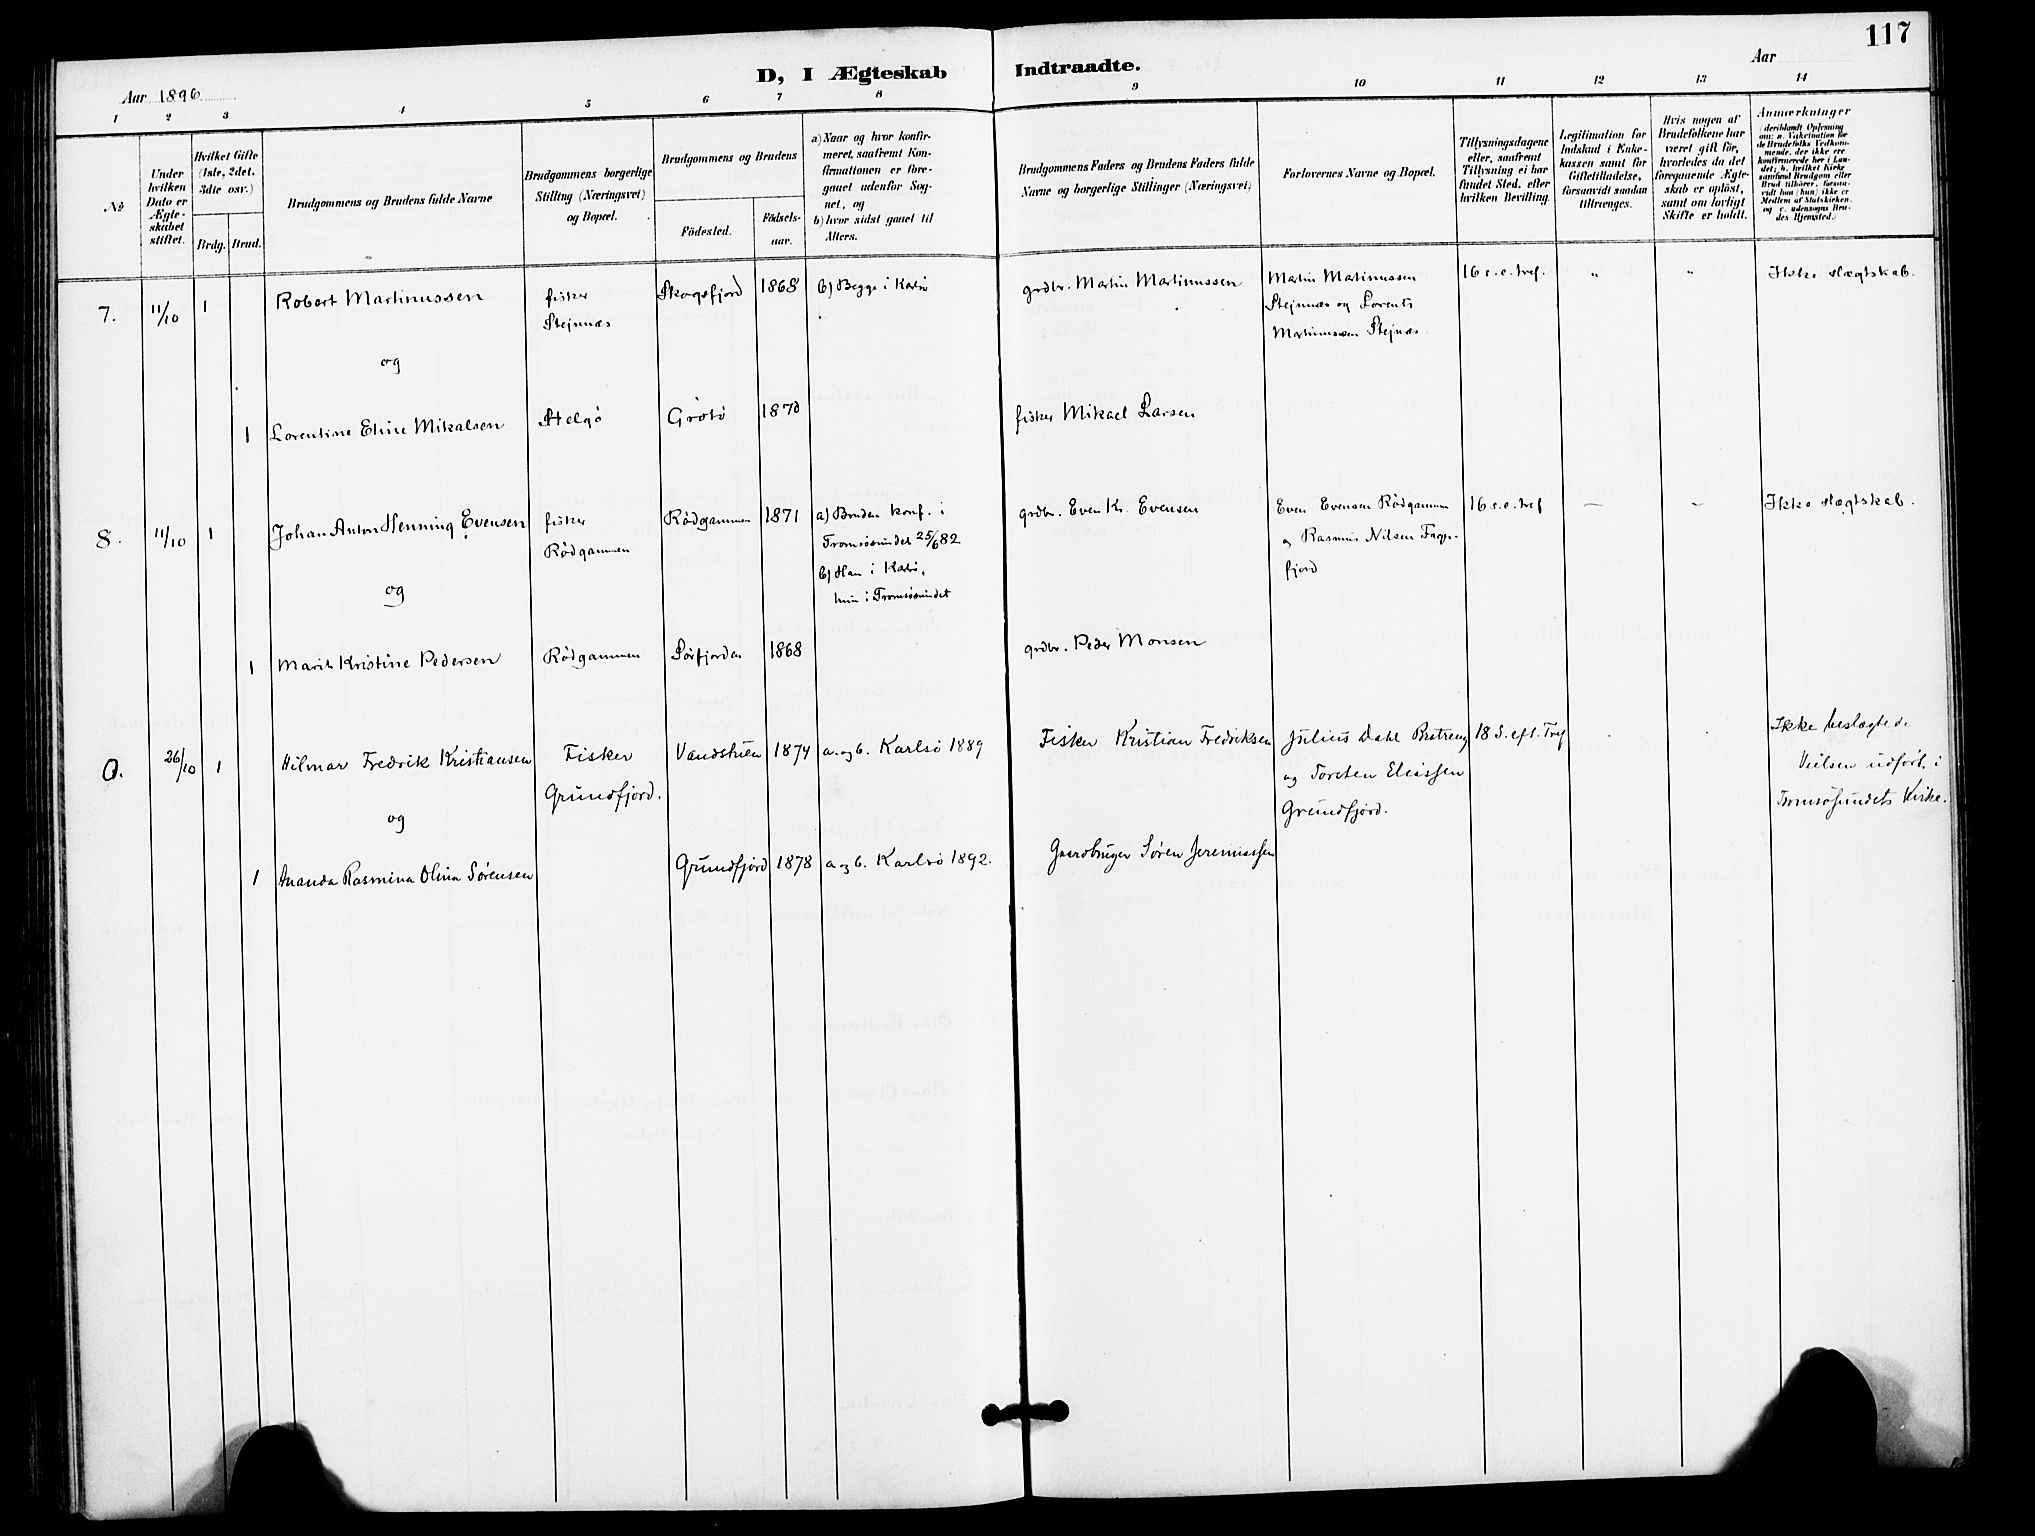 117
D, I Ægteskab Indtraadte.
Aar 1896
Aar
1 2 3 4 5 6 7 8 9 10 11 12 13 14
№
Under
hvilken
Dato er
Ægte-
skabet
stiftet.
Hvilket Gifte
(1ste, 2det,
3die osv.)
Brdg. Brud.
Brudgommens og Brudens fulde Navne
Brudgommens borgerlige
Stilling (Næringsvei)
og Bopæl.
Brudgommens og Brudens
Födested.
Födsels-
aar.
a) Naar og hvor konfir-
meret, saafremt Kon-
firmationen er fore-
gaaet udenfor Sog-
net, og
b) hvor sidst gaaet til
Alters.
Brudgommens Faders og Brudens Faders fulde
Navne og borgerlige Stillinger (Næringsvei)
Forlovernes Navne og Bopæl.
Tillysningsdagene
eller, saafremt
Tillysning ei har
fundet Sted, efter
hvilken Bevilling.
Legitimation for
Indskud i Enke-
kassen samt for
Giftetilladelse,
forsaavidt saadan
tiltrænges.
Hvis nogen af
Brudefolkene har
været gift för,
hvorledes da det
foregaaende Ægte-
skab er oplöst,
samt om lovligt
Skifte er holdt.
Anmærkninger
(deriblandt Oplysning
om: a. Vakcination for
de Brudefolks Vedkom-
mende, der ikke ere
konfirmerede her i Lan-
det; b. hvilket Kirke-
samfund Brudgom eller
Brud tilhörer, forsaa-
vidt han (hun) ikke er
Medlem af Statskirken,
og c. udensogns Bru-
des Hjemsted.)
7. 11/10 1 Robert Martinussen fisker Skogsfjord 1868 b) Begge i Karlsö grdbr. Martin Martinussen Martin Martinussen 16 s. e. tref. " " Ikke slægtskab.
Stejnnæs Stejnnæs og Lorents
Martinussen Stejnæs.
og
1 Lorentine Eline Mikalsen Helgö Grötö 1870 fisker Mikael Larsen
8. 11/10 1 Johan Anton Henning Evensen fisker Rödgammen 1871 a) Bruden konf. i grdbr. Even Kr. Evensen Even Evensen Rödgammen 16 s. e. tref – – Ikke slægtskab.
Rödgammen Tromsösundet 25/6 82 og Rasmus Nilsen
b) Han i Karlsö, fjord
og hun i Tromsösundet
1 Marit Kristine Pedersen Rödgammen Sörfjorden 1868 grdbr. Peder Monsen
26/10 1 Hilmar Fredrik Kristiansen Fisker 1874 a. og b. Karlsö 1889 Fisker Kristian Fredriksen Julius Dahl 18 S. eft. Tref Ikke beslægtede
Grundfjord. og Torsten Eliassen Vielsen udfört i
og Grundfjord. Tromsösundets Kirke.
1 Ananda Rasmina Olina Sörensen Grundfjord 1878 a og b. Karlsö 1892. Gaardbruger Sören Jeremiassen